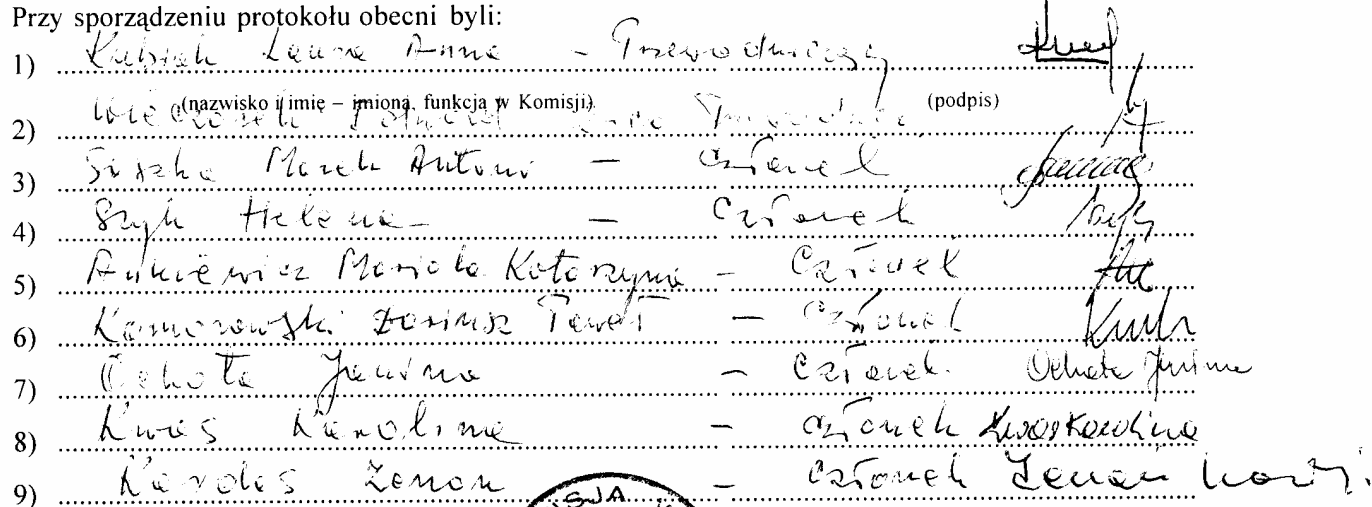 Przy sporządzeniu protokołu obecni byli:
1) Kubiak Laura Anna – Przewodniczący
(nazwisko i imię – imiona, funkcja w Komisji) (podpis)
2)
3) Siszka Marek Antoni – Członek
4) Szyk Helena – Członek
5) Ankiewicz Mariola Katarzyna – Członek
6) Komorowski Dariusz Paweł – Członek
7) Ochota Janina – Członek Ochota Janina
8) Kwas Karolina – członek Kwas Karolina
9) Kardas Zenon – członek Zenon
SJA